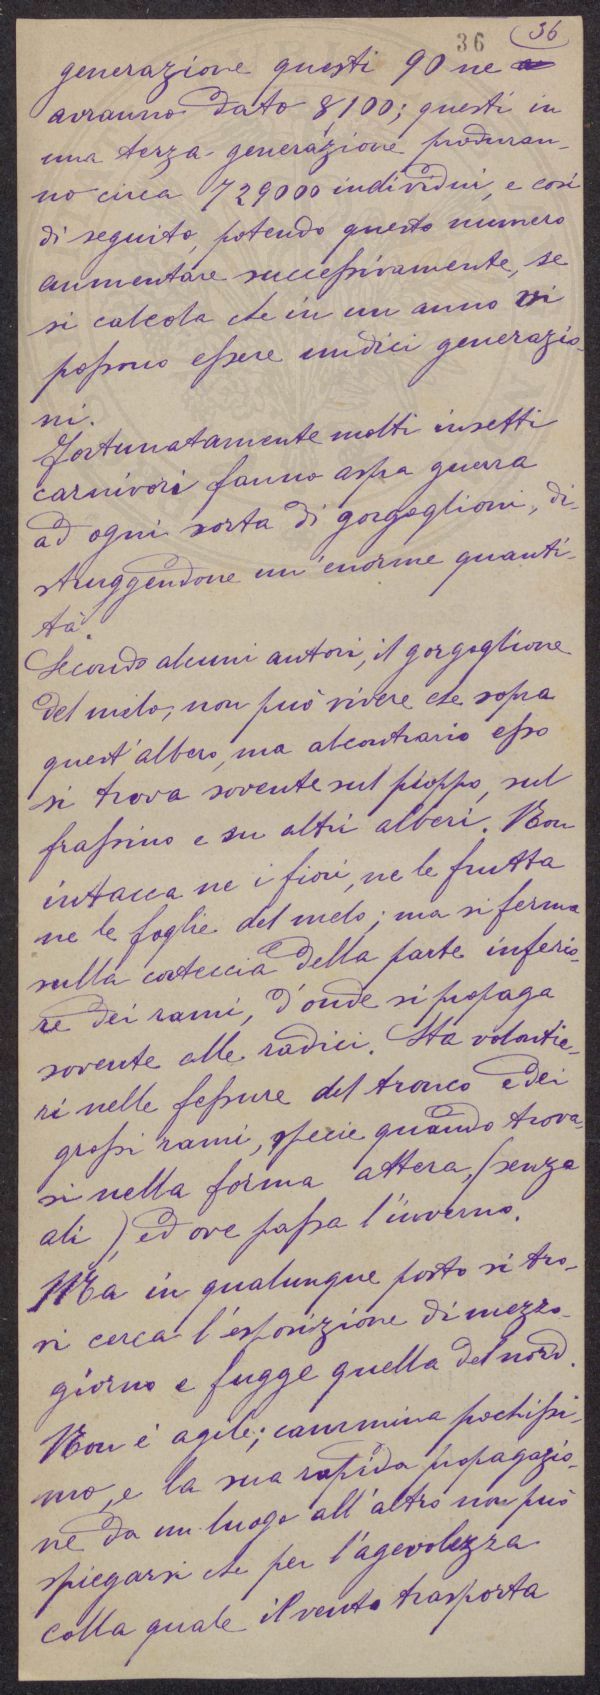 36 36
generazione questi 90 ne
avranno dato 8,100; questi in
una terza generazione produran-
no circa 729000 individui, e così
di seguito, potendo questo numero
aumentare successivamente, se
si calcola che in un anno vi
possono essere undici generazio-
ni.
Fortunatamente molti insetti
carnivori fanno aspra guerra
ad ogni sorta di gorgoglioni, di-
struggendone un'enorme quanti-
tà.
Secondo alcuni autori, il gorgoglione
del melo, non può vivere che sopra
quest'albero, ma alcontrario esso
si trova sovente sul pioppo, sul
frassino e su altri alberi. Non
intacca ne i fiori, ne le frutta
ne le foglie del melo; ma si ferma
sulla corteccia della parte inferio-
re dei rami, d'onde si propaga
sovente alle radici. Sta volontie-
ri nelle fessure del tronco e dei
grossi rami, specie quando trova-
si nella forma attera, (senza
ali), ed ove passa l'inverno.
Ma in qualunque posto si tro-
vi cerca l'esposizione di mezzo-
giorno e fugge quella del nord.
Non è agile; cammina pochissi-
mo, e la sua rapida propagazio-
ne da un luogo all'altro non può
spiegarsi che per l'agevolezza
colla quale il vento trasporta